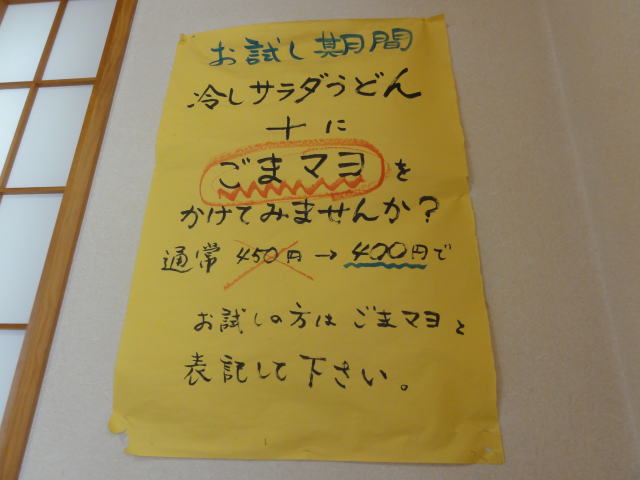 お試し期間
冷しサラダうどん
+に
ごまマヨを
かけてみませんか?
通常 450円→400円で
お試しの方はごまマヨと
表記して下さい。